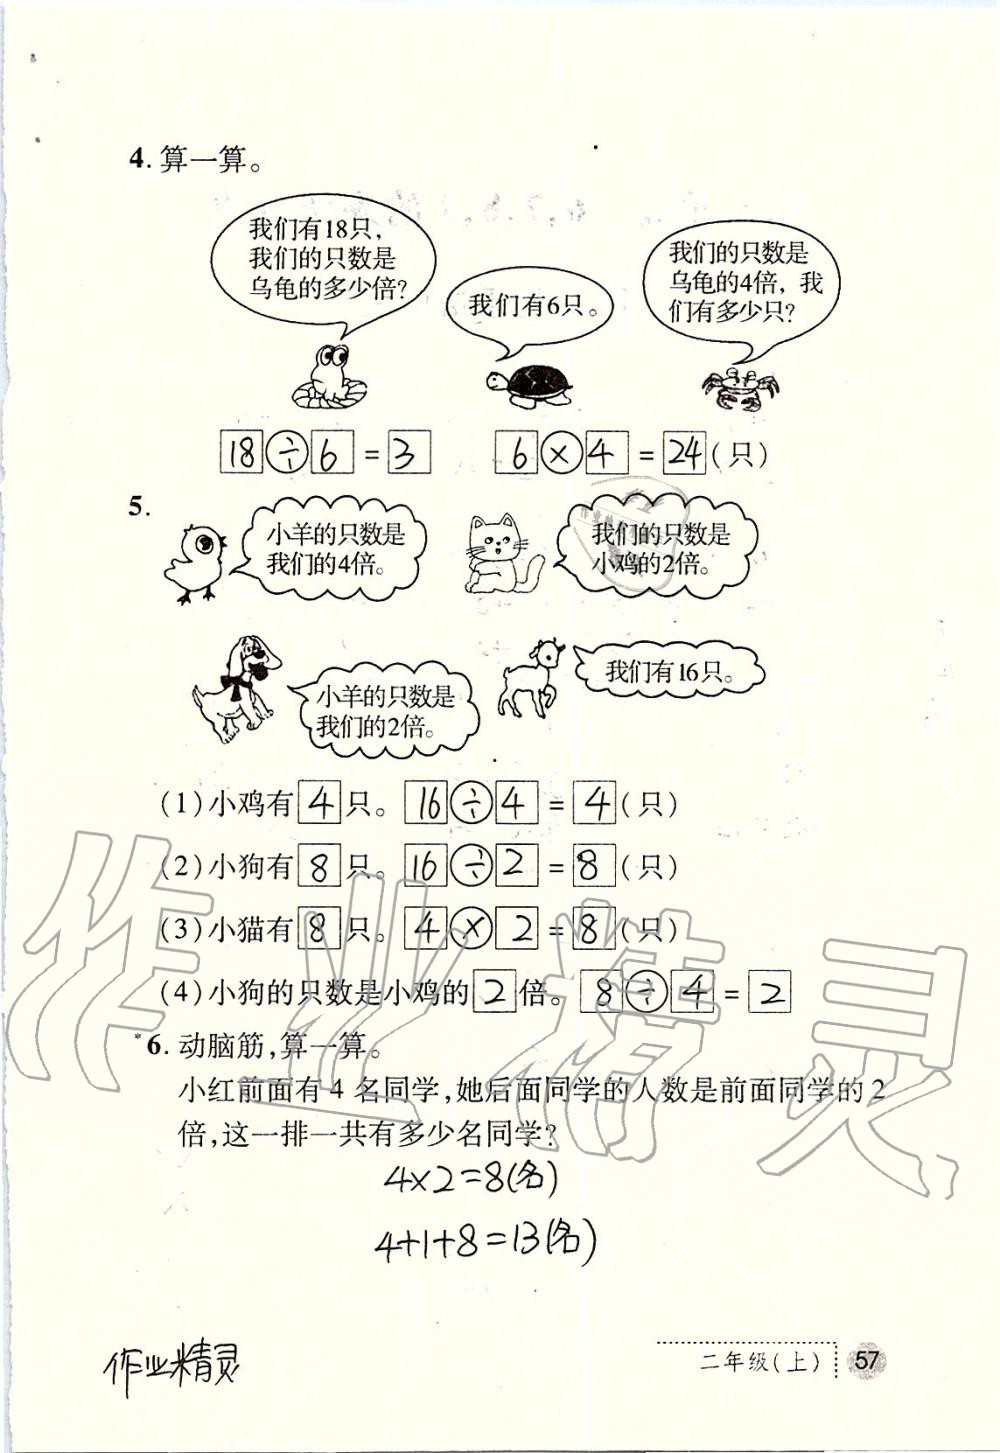 4. 算一算。
我们有18只，
我们的只数是
乌龟的多少倍?
我们有6只。
我们的只数是
乌龟的4倍，我
们有多少只?
18÷6=3
6×4=24(只)
5.
小羊的只数是
我们的4倍。
我们的只数是
小鸡的2倍。
小羊的只数是
我们的2倍。
我们有16只。
(1)小鸡有4只。16÷4=4(只)
(2)小狗有8只。16÷2=8(只)
(3)小猫有8只。4×2=8(只)
(4)小狗的只数是小鸡的2倍。8÷4=2
*6. 动脑筋,算一算。
小红前面有4名同学,她后面同学的人数是前面同学的2
倍,这一排一共有多少名同学?
4×2=8(名)
4+1+8=13(名)
作业精灵
作业精灵
二年级(上)
57